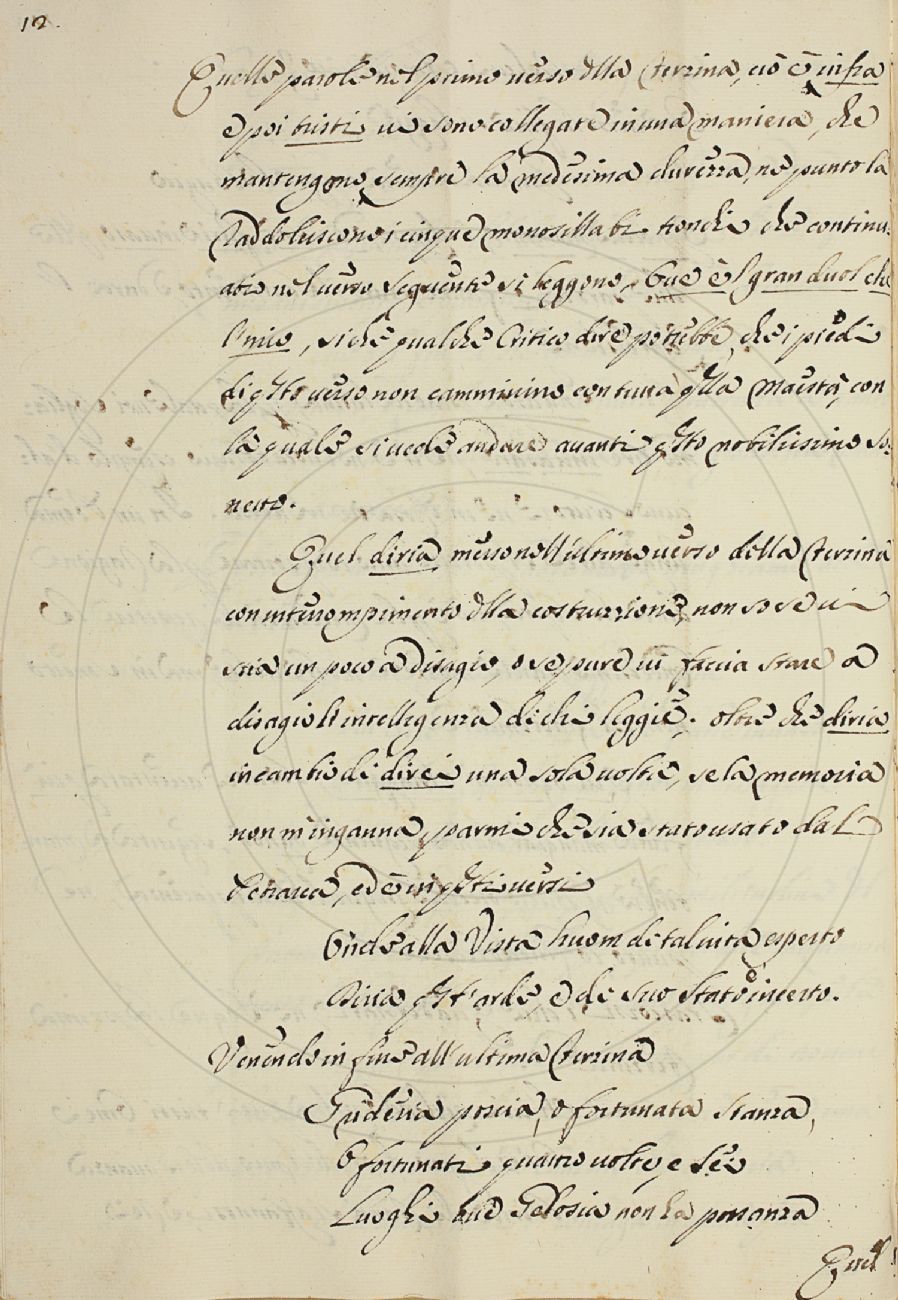 12.
Quelle parole nel primo verso dlla Terzina, ciò è infra
e poi tristi vi sono collegate in una maniera, che
mantengono sempre la medesima durezza, ne punto la
raddolciscono i cinque monosillabi tronchi che continu-
ati nel verso seguente si leggono, ove è 'l gran duol che
l'mio, siche qualche Critico dire potrebbe, che i piedi
di qsto verso non camminino con tutta qlla Maestà, con
la quale si vede andare avanti qsto nobilissimo So-
netto.
Quel diria messo nell'ultimo verso della Terzina
con interrompimento dlla costruzione, non so se vi
stia un poco a disagio, o se pure vi faccia stare a
disagio l'intelligenza di chi leggie. oltre che diria
in cambio di direi una sola volta, se la memoria
non m'inganna, parmi che sia stato usato dal
Petrarca, ed è in qsti versi
Onde alla Vista huom di tal vita esperto
Diria qst' arde, e di suo Stato è incerto.
Venendo in fine all'ultima Terzina
Gridería poscia, o fortunata stanza,
O fortunati quatro volte, e sei
Luoghi ove Gelosia non ha possanza
Quel